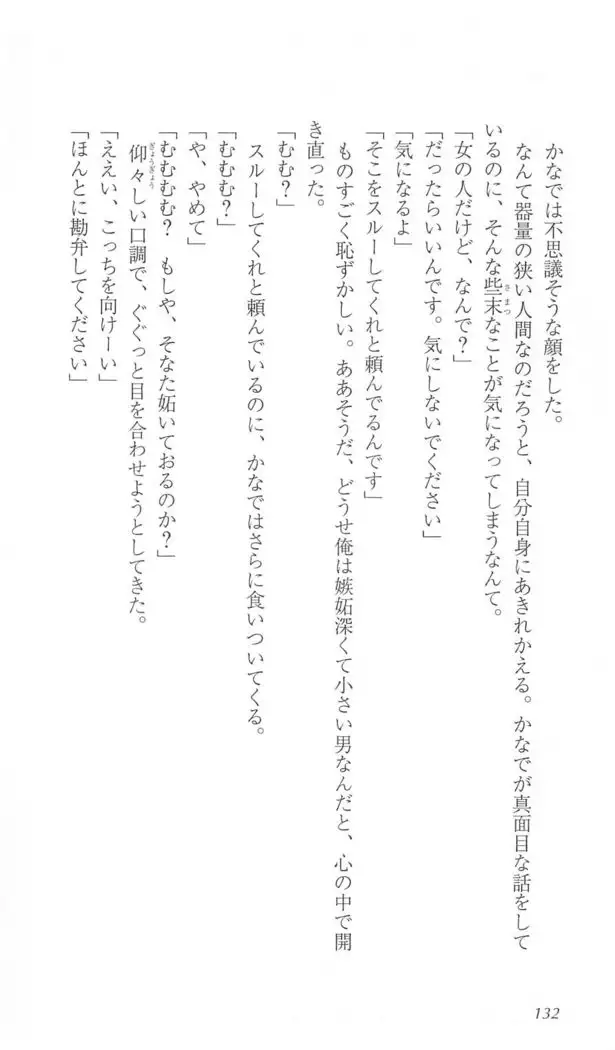 かなでは不思議そうな顔をした。
なんて器量の狭い人間なのだろうと、自分自身にあきれかえる。かなでが真面目な話をして
いるのに、そんな些末なことが気になってしまうなんて。
さまつ
「女の人だけど、なんで?」
「だったらいいんです。気にしないでください」
「気になるよ」
「そこをスルーしてくれと頼んでるんです」
ものすごく恥ずかしい。ああそうだ、どうせ俺は嫉妬深くて小さい男なんだと、心の中で開
き直った。
「むむ?」
スルーしてくれと頼んでいるのに、かなではさらに食いついてくる。
「むむむ?」
「や、やめて」
「むむむむ? もしや、そなた妬いておるのか?」
仰々しい口調で、ぐぐっと目を合わせようとしてきた。
ぎょうぎょう
「ええい、こっちを向けーい」
「ほんとに勘弁してください」
132